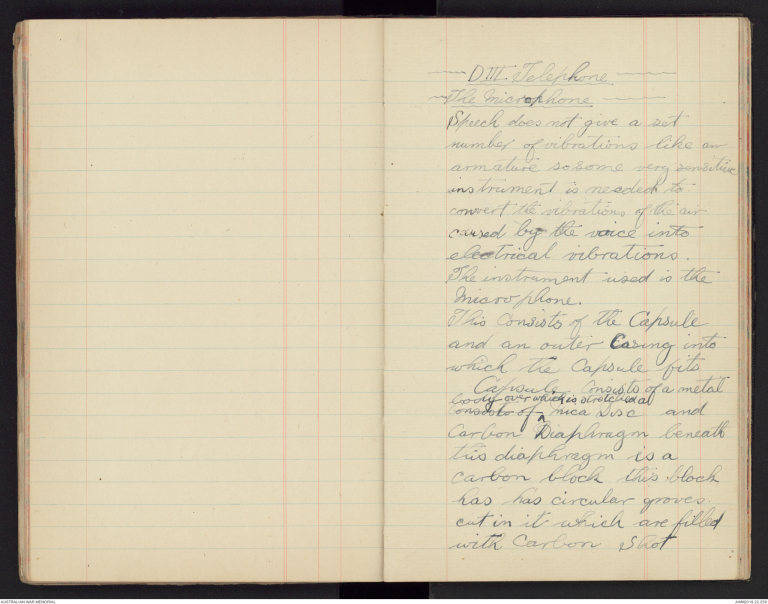 D III. Telephone
The Microphone
Speech does not give a set
number of vibrations like an
armature so some very sensitive
instrument is needed to
convert the vibrations of the air
caused by the voice into
electrical vibrations.
The instrument used is the
Microphone.
This Consists of the Capsule
and an outer Casing into
which the Capsule fits
Capsule Consists of a metal
body over which is stretched a
consists of a mica Disc and
Carbon Diaphragm beneath
this diaphragm is a
carbon block this block
has has circular groves
cut in it which are filled
with Carbon Shot
AUSTRALIAN WAR MEMORIAL